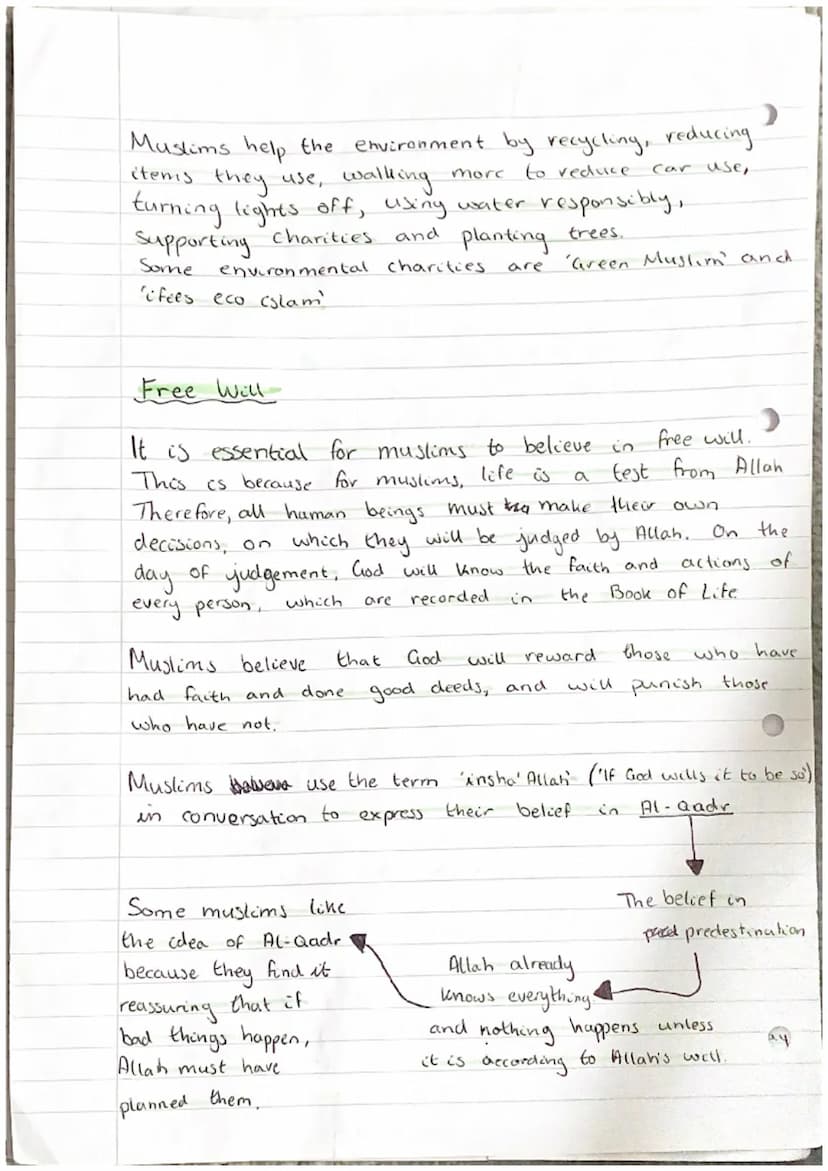 Muslims help the environment by recycling, reducing
items they use, walking more to reduce car use,
turning lights off, using water responsibly,
supporting charities and planting trees.
Some environmental charities are 'Green Muslim' and
'ifees eco islam'
Free Will
It is essential for muslims to believe in free will.
This is because for muslims, life is a test from Allah
Therefore, all human beings must make their own
decisions, on which they will be judged by Allah. On the
day of judgement, God will know the faith and actions of
every person, which are recorded in the Book of Life
Muslims believe that God will reward those who have
had faith and done good deeds, and will punish those
who have not.
Muslims use the term 'insha'Allah' ('If God wills it to be so')
in conversation to express their belief in Al-Qadr
The belief in
predestination
Allah already
knows everything
and nothing happens unless
it is according to Allah's will.
Some muslims like
the idea of Al-Qadr
because they find it
reassuring that if
bad things happen,
Allah must have
planned them.